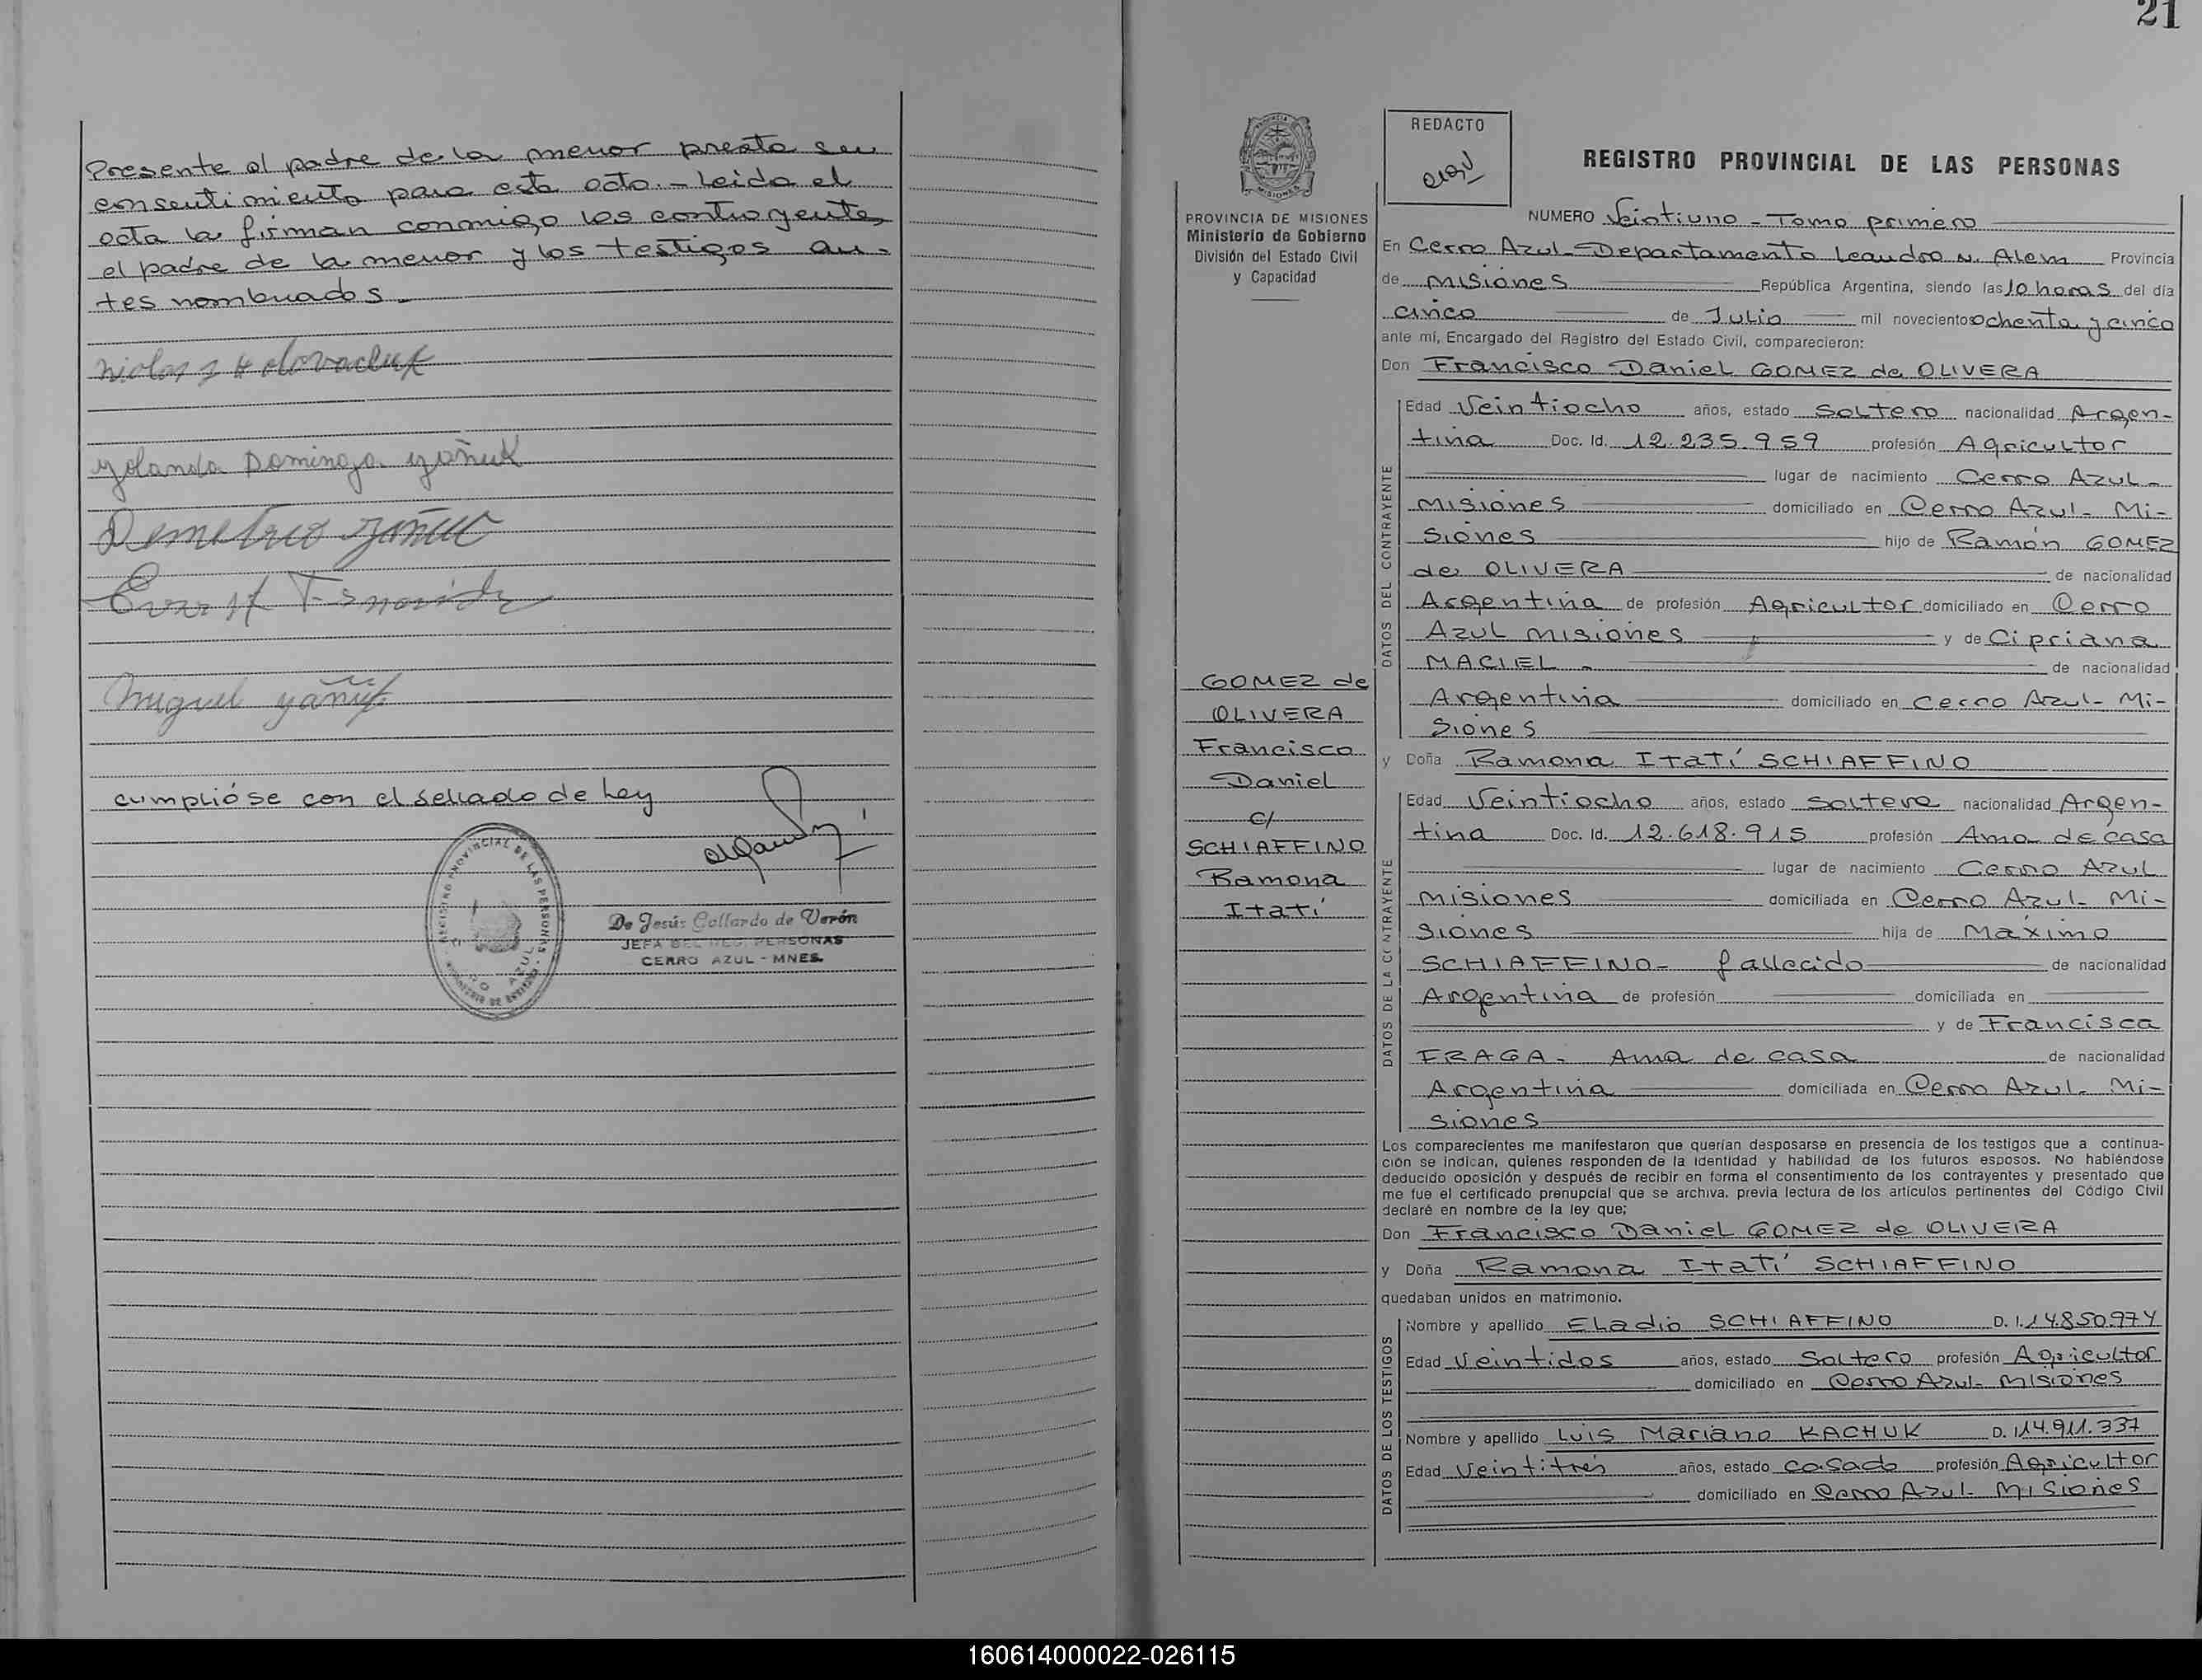 Presente el padre de la menor presta su
consentimiento para este acto.- Leida el
acta la firman conmigo los contrayentes,
el padre de la menor y los testigos an-
tes nombrados.-
Yolanda Dominga Yañuk
Demetrio Yañuc
Miguel Yañuk
cumplióse con el sellado de Ley
REGISTRO PROVINCIAL DE LAS PERSONAS
De Jesús Gallardo de Verón
JEFA DEL REG. PERSONAS
CERRO AZUL - MNES.
21
PROVINCIA DE MISIONES
Ministerio de Gobierno
División del Estado Civil
y Capacidad
GOMEZ de
OLIVERA
Francisco
Daniel
c/
SCHIAFFINO
Ramona
Itatí
REDACTO
REGISTRO PROVINCIAL DE LAS PERSONAS
NUMERO Veintiuno - Tomo primero
En Cerro Azul - Departamento Leandro N. Alem Provincia
de Misiones República Argentina, siendo las 10 horas del día
cinco de Julio mil novecientos ochenta y cinco
ante mí, Encargado del Registro del Estado Civil, comparecieron:
Don Francisco Daniel GOMEZ de OLIVERA
DATOS DEL CONTRAYENTE
Edad Veintiocho años, estado Soltero nacionalidad Argen-
tina Doc. Id. 12.235.959 profesión Agricultor
lugar de nacimiento Cerro Azul-
Misiones domiciliado en Cerro Azul- Mi-
siones hijo de Ramón GOMEZ
de OLIVERA de nacionalidad
Argentina de profesión Agricultor domiciliado en Cerro
Azul Misiones y de Cipriana
MACIEL - de nacionalidad
Argentina domiciliado en Cerro Azul- Mi-
siones
y Doña Ramona Itatí SCHIAFFINO
DATOS DE LA CONTRAYENTE
Edad Veintiocho años, estado Soltera nacionalidad Argen-
tina Doc. Id. 12.618.915 profesión Ama de casa
lugar de nacimiento Cerro Azul
Misiones domiciliada en Cerro Azul- Mi-
siones hija de Máximo
SCHIAFFINO- fallecido de nacionalidad
Argentina de profesión domiciliada en
y de Francisca
FRAGA- Ama de casa de nacionalidad
Argentina domiciliada en Cerro Azul- Mi-
siones
Los comparecientes me manifestaron que querían desposarse en presencia de los testigos que a continua-
ción se indican, quienes responden de la identidad y habilidad de los futuros esposos. No habiéndose
deducido oposición y después de recibir en forma el consentimiento de los contrayentes y presentado que
me fue el certificado prenupcial que se archiva, previa lectura de los artículos pertinentes del Código Civil
declaré en nombre de la ley que;
Don Francisco Daniel GOMEZ de OLIVEIRA
y Doña Ramona Itatí SCHIAFFINO
quedaban unidos en matrimonio.
DATOS DE LOS TESTIGOS
Nombre y apellido Eladio SCHIAFFINO D. I. 14.850.974
Edad Veintidos años, estado Soltero profesión Agricultor
domiciliado en Cerro Azul- Misiones
Nombre y apellido Luis Mariano KACHUK D. I 14.911.337
Edad Veintitrés años, estado Casado profesión Agricultor
domiciliado en Cerro Azul- Misiones
160614000022-026115